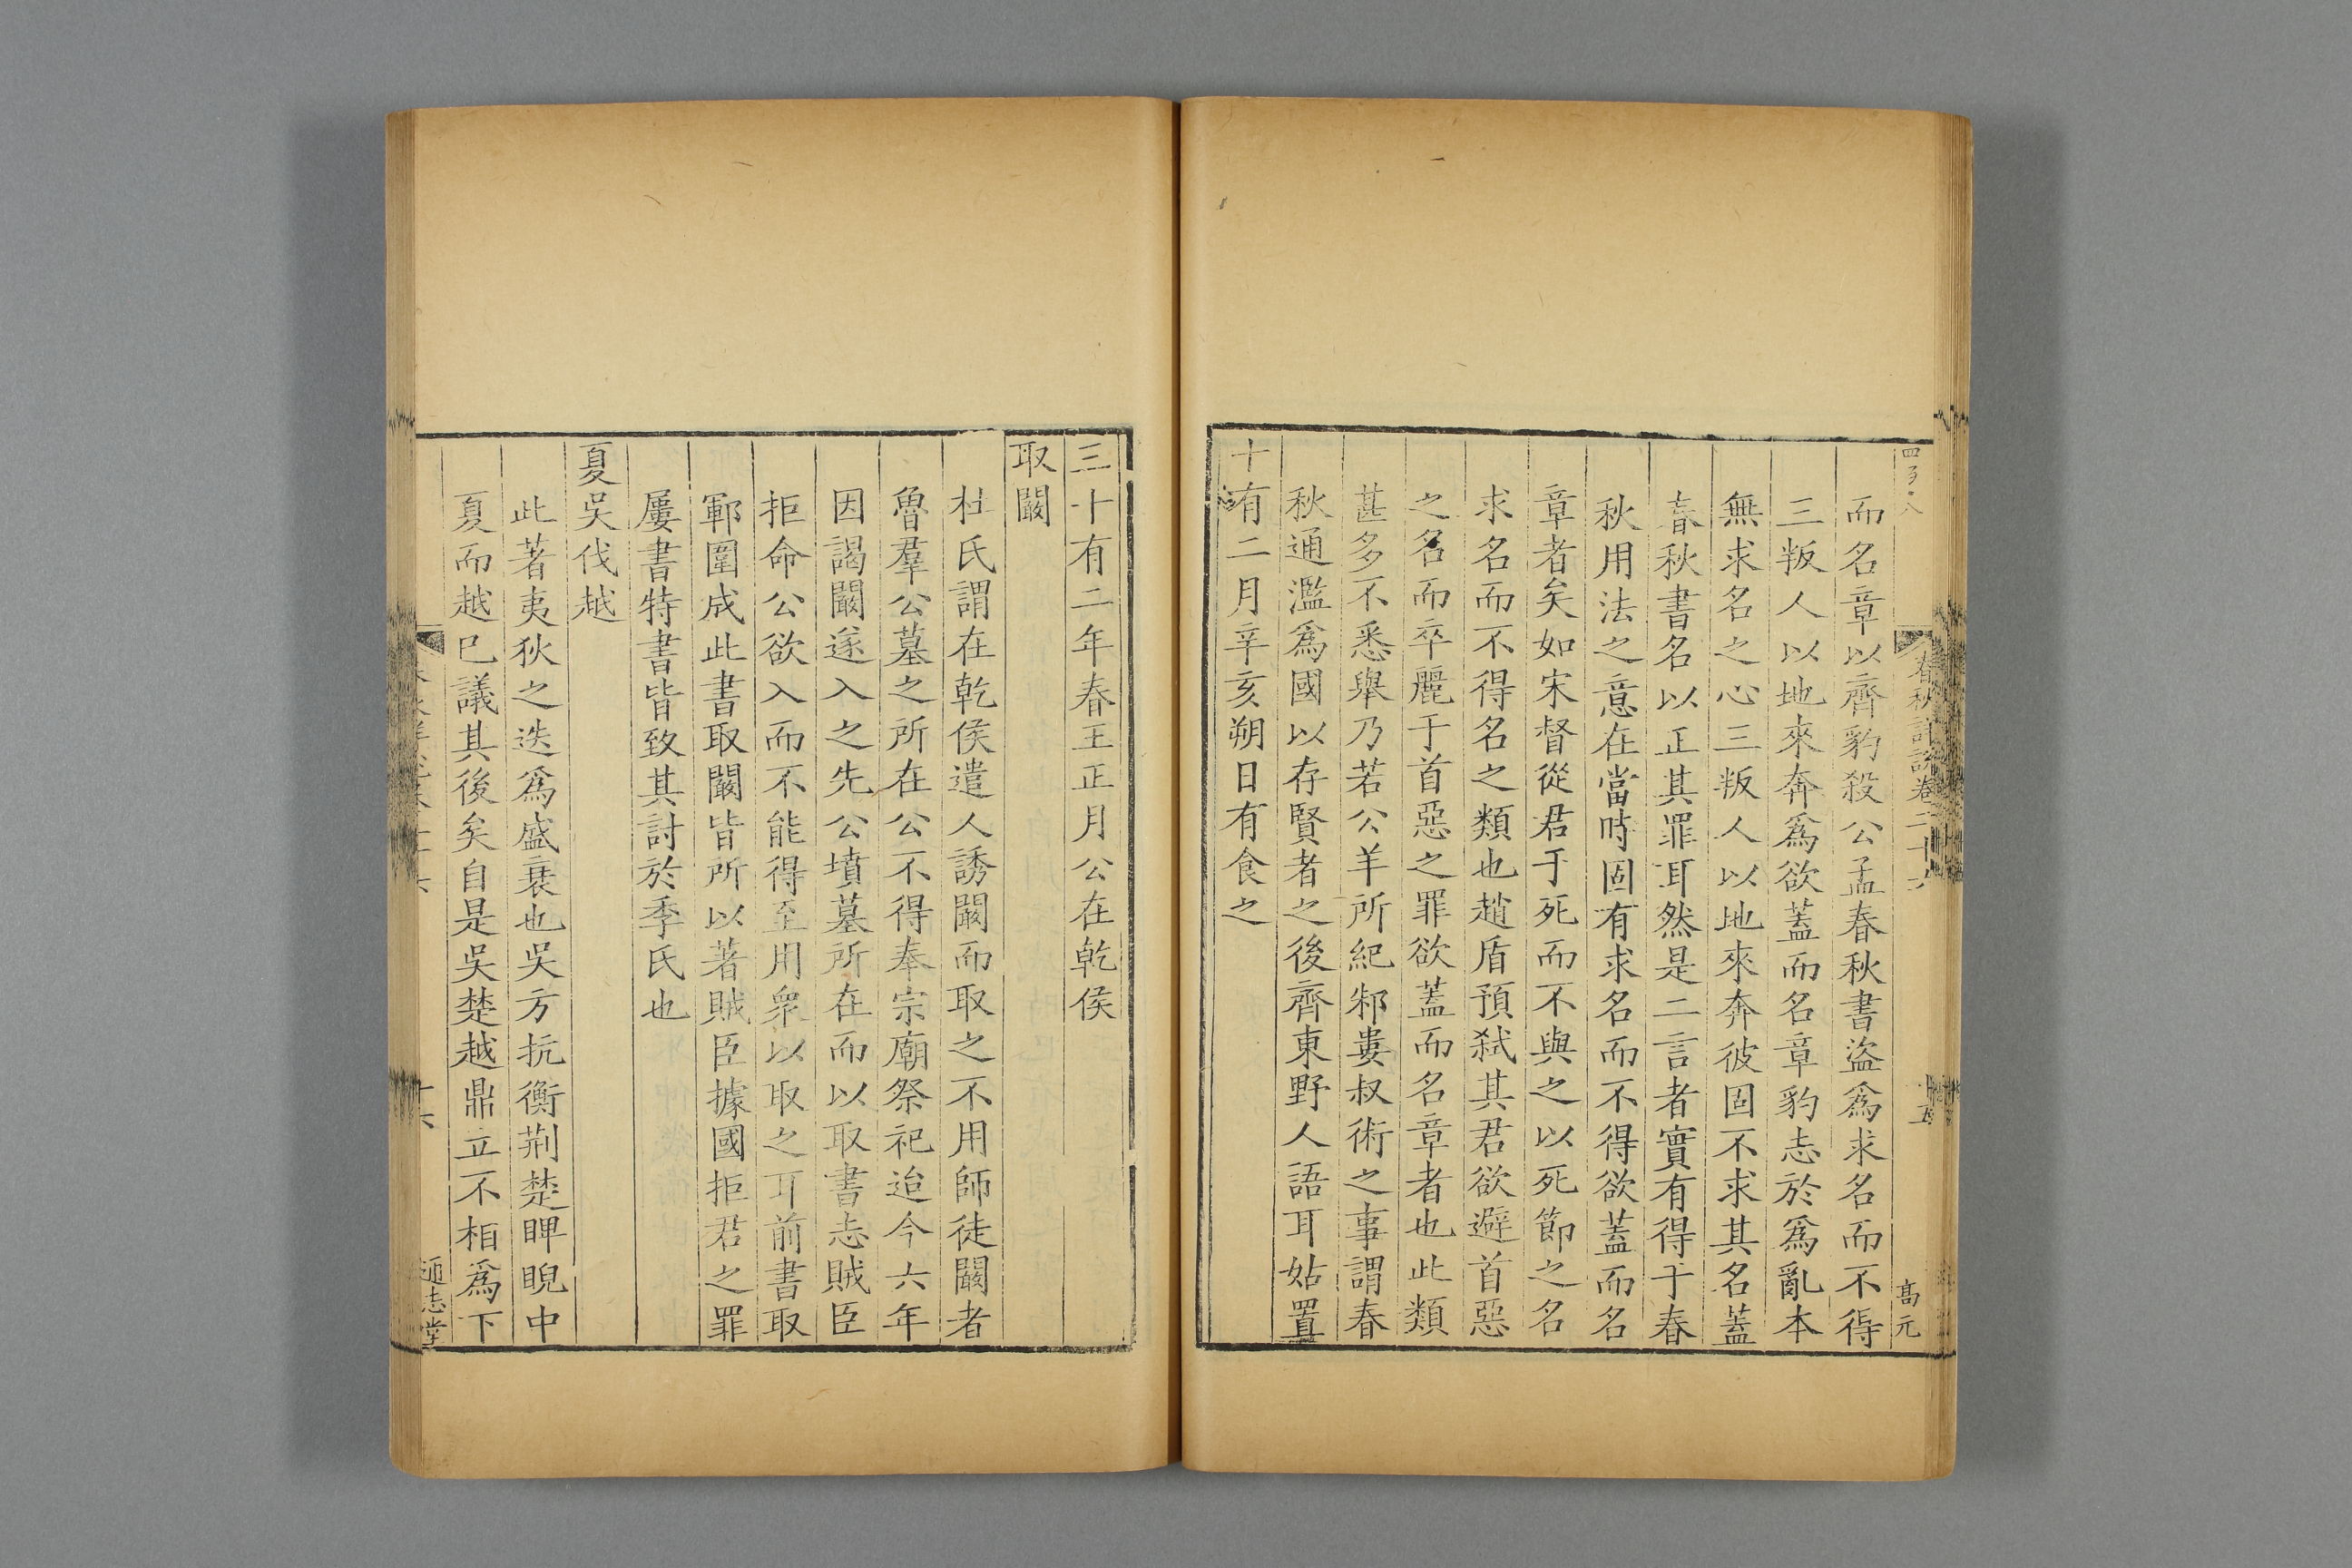 春秋詳說卷二十六
十五
高元
而名章以齊豹殺公孟春秋書盜爲求名而不得
三叛人以地來奔爲欲蓋而名章豹志於爲亂本
無求名之心三叛人以地來奔彼固不求其名蓋
春秋書名以正其罪耳然是二言者實有得于春
秋用法之意在當時固有求名而不得欲蓋而名
章者矣如宋督從君于死而不與之以死節之名
求名而不得名之類也趙盾預弑其君欲避首惡
之名而卒麗于首惡之罪欲蓋而名章者也此類
甚多不悉舉乃若公羊所紀邾婁叔術之事謂春
秋通濫爲國以存賢者之後齊東野人語耳姑置
十有二月辛亥朔日有食之
三十有二年春王正月公在乾侯
取闞
杜氏謂在乾侯遣人誘闞而取之不用師徒闞者
魯羣公墓之所在公不得奉宗廟祭祀迨今六年
因謁闞遂入之先公墳墓所在而以取書志賊臣
拒命公欲入而不能得至用衆以取之耳前書取
鄆圍成此書取闞皆所以著賊臣據國拒君之罪
屢書特書皆致其討於季氏也
夏吳伐越
此著夷狄之迭爲盛衰也吳方抗衡荆楚睥睨中
夏而越巳議其後矣自是吳楚越鼎立不相爲下
十六
通志堂